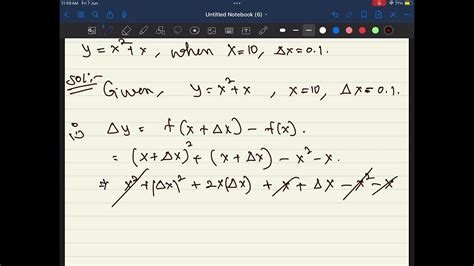 11:09 AM Fri 7 Jun
71%
Untitled Notebook (6)
y = x²+x, when x=10, Δx=0.1.
Sol:- Given, y = x²+x , x=10, Δx=0.1.
i) Δy = f(x+Δx) − f(x).
= (x+Δx)² + (x+Δx) − x² − x.
⇒ x² + (Δx)² + 2x(Δx) + x + Δx − x² − x